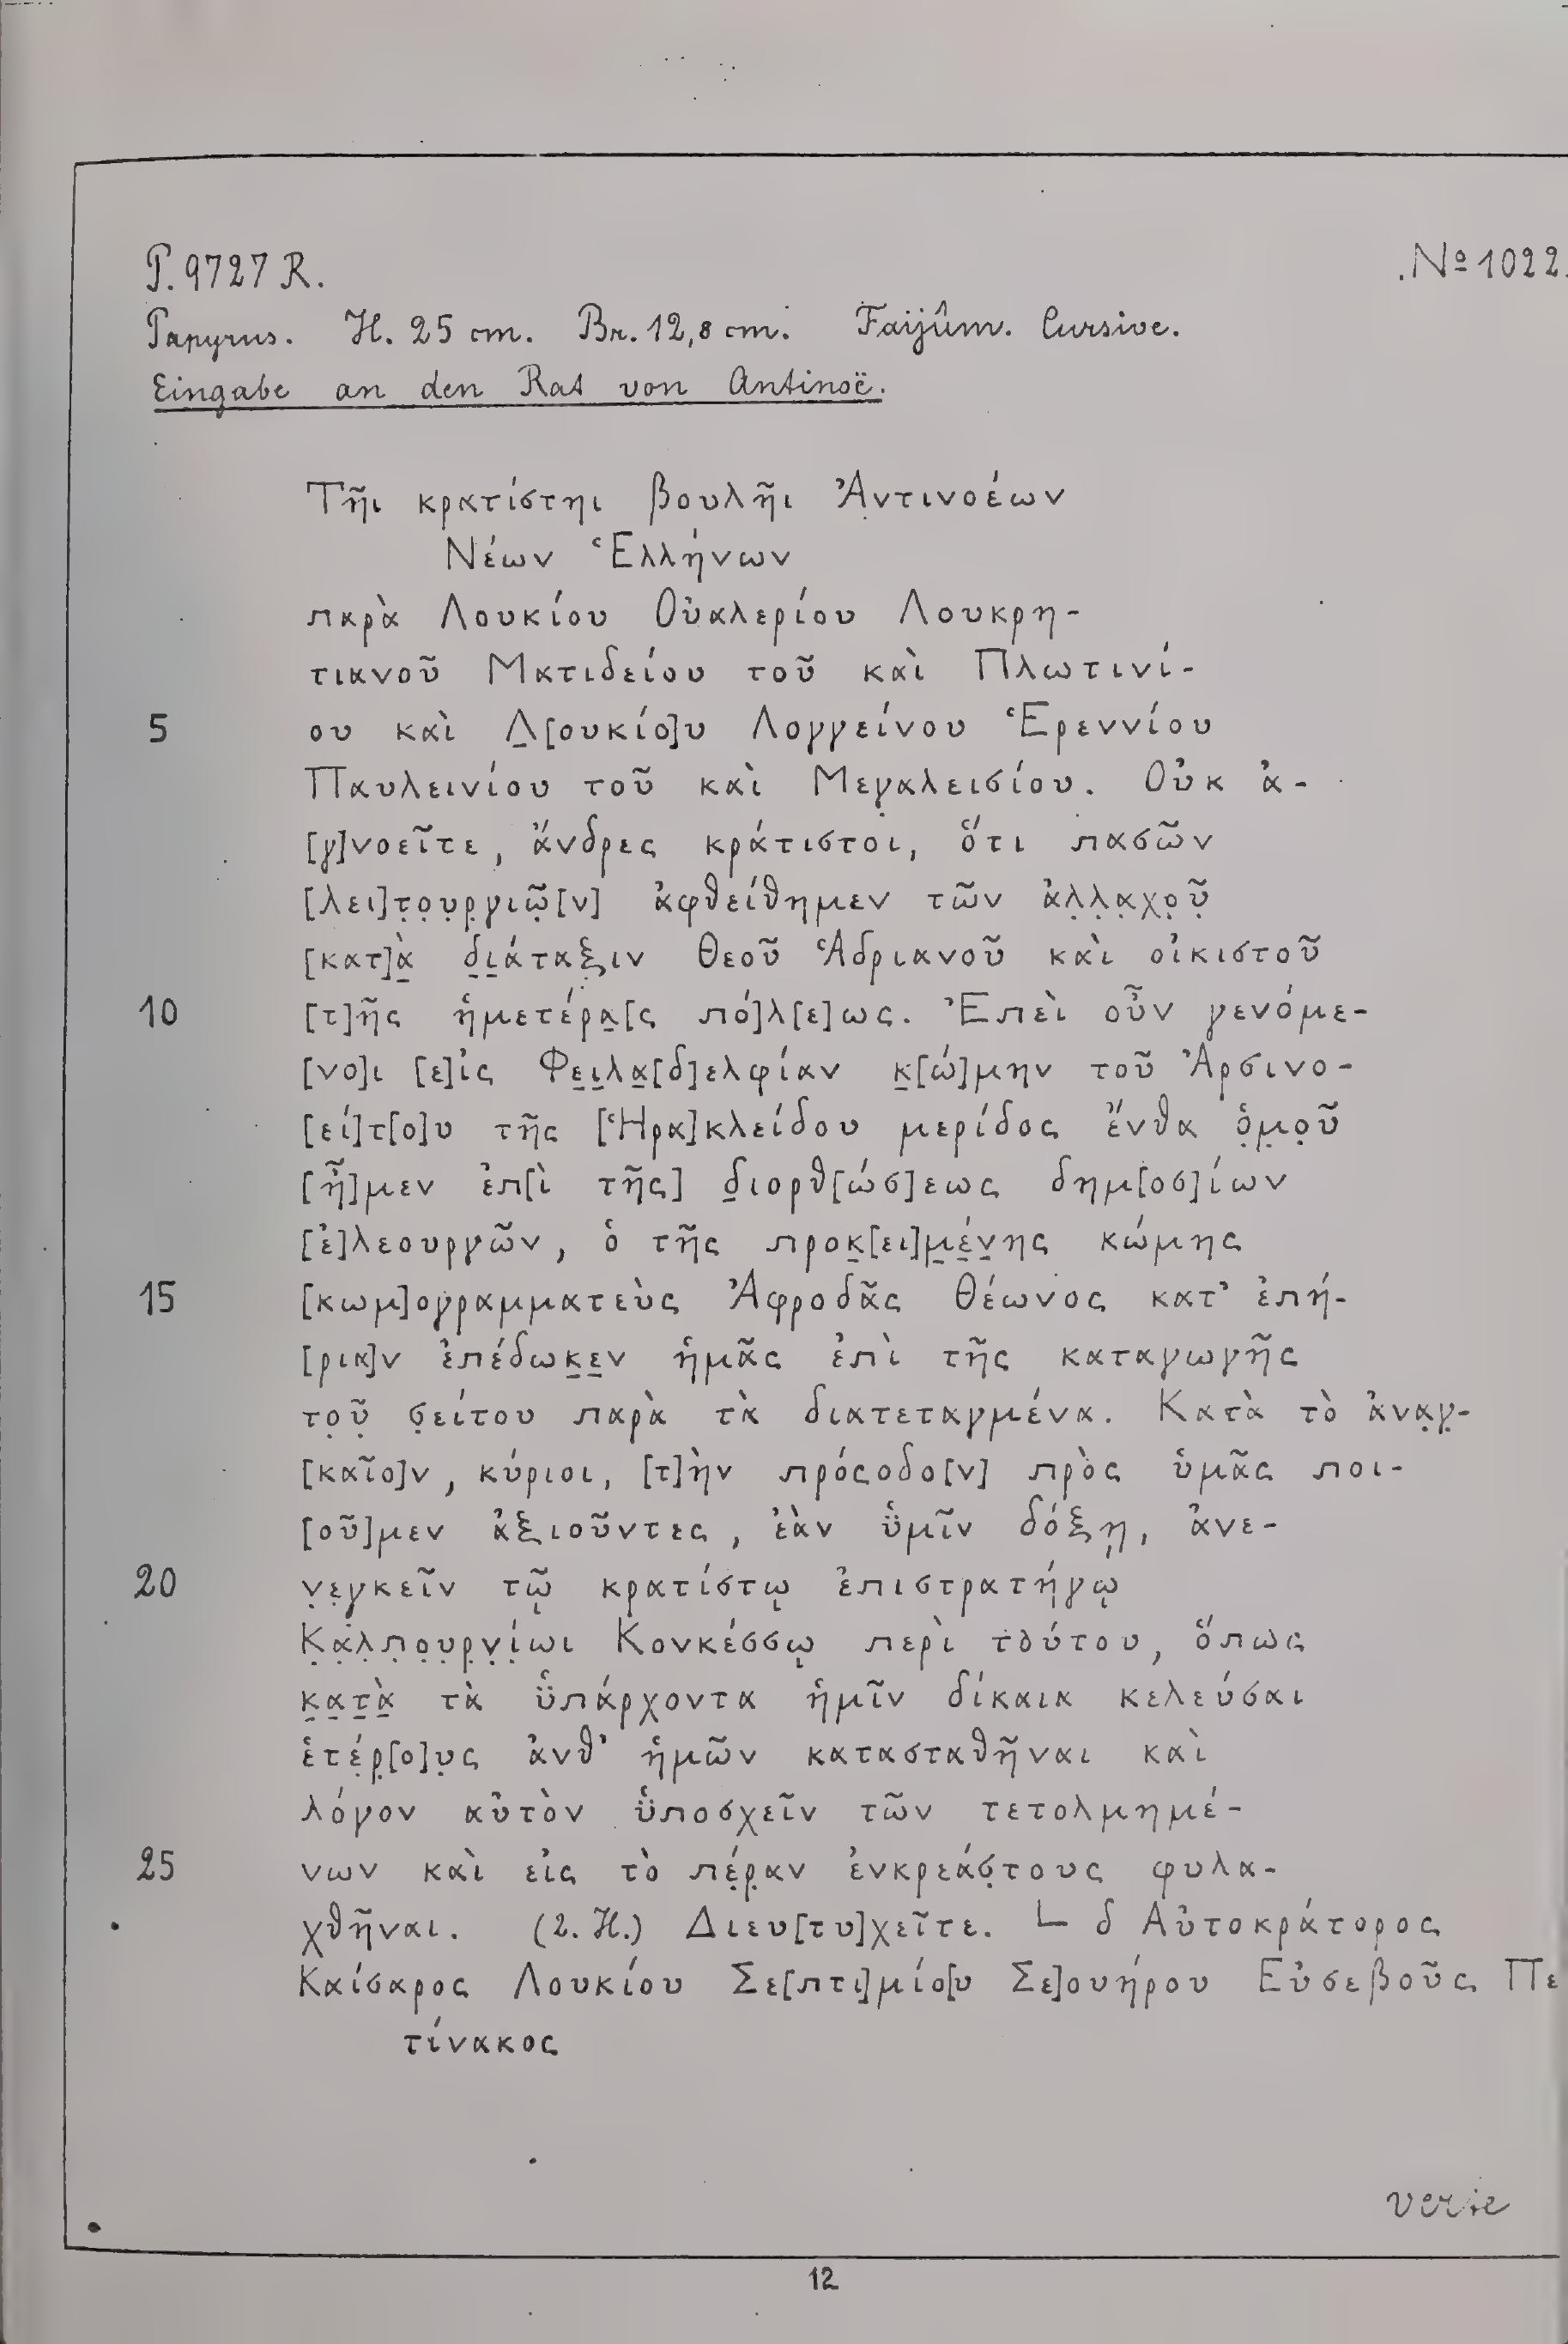 P. 9727 R. № 1022.
Papyrus. H. 25 cm. Br. 12,8 cm. Faijûm. Cursive.
Eingabe an den Rat von Antinoë.
Τῆι κρατίστηι βουλῆι Ἀντινοέων
Νέων Ἑλλήνων
παρὰ Λουκίου Οὐαλερίου Λουκρη-
τιανοῦ Ματιδείου τοῦ καὶ Πλωτινί-
5 ου καὶ Λ̣[ουκίο]υ Λογγείνου Ἑρεννίου
Παυλεινίου τοῦ καὶ Μεγ̣αλεισίου. Οὐκ ἀ-
[γ]νοεῖτε, ἄνδρες κράτιστοι, ὅτι πασῶν
[λει]τ̣ο̣υ̣ρ̣γιῶ̣[ν] ἀφθείθημεν τῶν ἀλ̣λ̣α̣χο̣ῦ̣
[κατ]ὰ̣ δ̣ι̣άταξιν Θεοῦ Ἁδριανοῦ καὶ οἰκιστοῦ
10 [τ]ῆς ἡμετέρα̣[ς πό]λ[ε]ως. Ἐπεὶ οὖν γενόμε-
[νο]ι [ε]ἰς Φε̣ι̣λα̣[δ]ελφίαν κ̣[ώ]μην τοῦ Ἀρσινο-
[εί]τ[ο]υ τῆς [Ἡρα]κλείδου μερίδος ἔνθα ὁ̣μ̣ο̣ῦ
[ἦ]μεν ἐπ[ὶ τῆς] δ̣ιορθ[ώσ]εως δημ[οσ]ίων
[ἐ]λεουργῶν, ὁ τῆς προκ̣[ει]μ̣έ̣ν̣ης κώμης
15 [κωμ]ογραμματεὺς Ἀφροδᾶς Θέωνος κατ’ ἐπή-
[ρια]ν ἐπέδωκ̣ε̣ν ἡμᾶς ἐπὶ τῆς καταγωγῆς
το̣ῦ̣ σ̣είτου παρὰ τὰ διατεταγμένα. Κατὰ τὸ ἀνα̣γ̣-
[καῖο]ν, κύριοι, [τ]ὴν πρόςοδο[ν] πρὸς ὑμᾶς ποι-
[οῦ]μεν ἀξιοῦντες, ἐὰν ὑ̈μῖν δόξῃ, ἀνε-
20 ν̣ε̣γκεῖν τῷ κρατίστῳ ἐπιστρατήγῳ
Κ̣α̣λ̣π̣ο̣υ̣ρ̣ν̣ί̣ωι Κονκέσσῳ περὶ τούτου, ὅπως
κ̣α̣τ̣ὰ̣ τὰ ὑ̈πάρχοντα ἡμῖν δίκαια κελεύσαι
ἑτέ̣ρ̣[ο]υ̣ς ἀνθ’ ἡμῶν κατασταθῆναι καὶ
λόγον αὐτὸν ὑ̈ποσχεῖν τῶν τετολμημέ-
25 νων καὶ εἰς τὸ πέ̣ρ̣αν ἐνκρεάσ̣τους φυλα-
χθῆναι. (2. H.) Διευ[τυ]χεῖτε. L δ Αὐτοκράτορος
Καίσαρος Λουκίου Σε[πτι]μίο[υ Σε]ουήρου Εὐσεβοῦς Πε
τίνακος
12